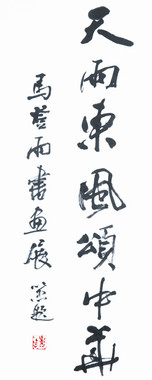 天雨東風頌中華
馬誉雨書畫展
題